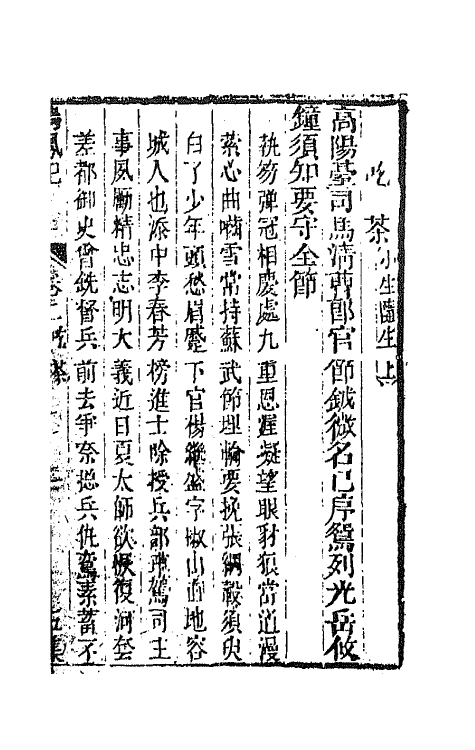 吃茶 小生隨生上
高陽臺司馬清曹郎官節鉞微名已序鴛列光岳攸
鐘須知要守全節
執笏彈冠相慶處九重恩渥凝望眼豺狼當道漫
縈心曲嚙雪常持蘇武節埋輪要挽張綱轂須臾
白了少年頭愁眉蹙下官楊繼盛字椒山直地容
城人也添中李春芳榜進士除授兵部車駕司主
事夙勵精忠志明大義近日夏太師欲恢復河套
差都御史曾銑督兵前去爭奈摠兵仇鸞素蓄不
鳴鳳記 卷上 吃茶 五集